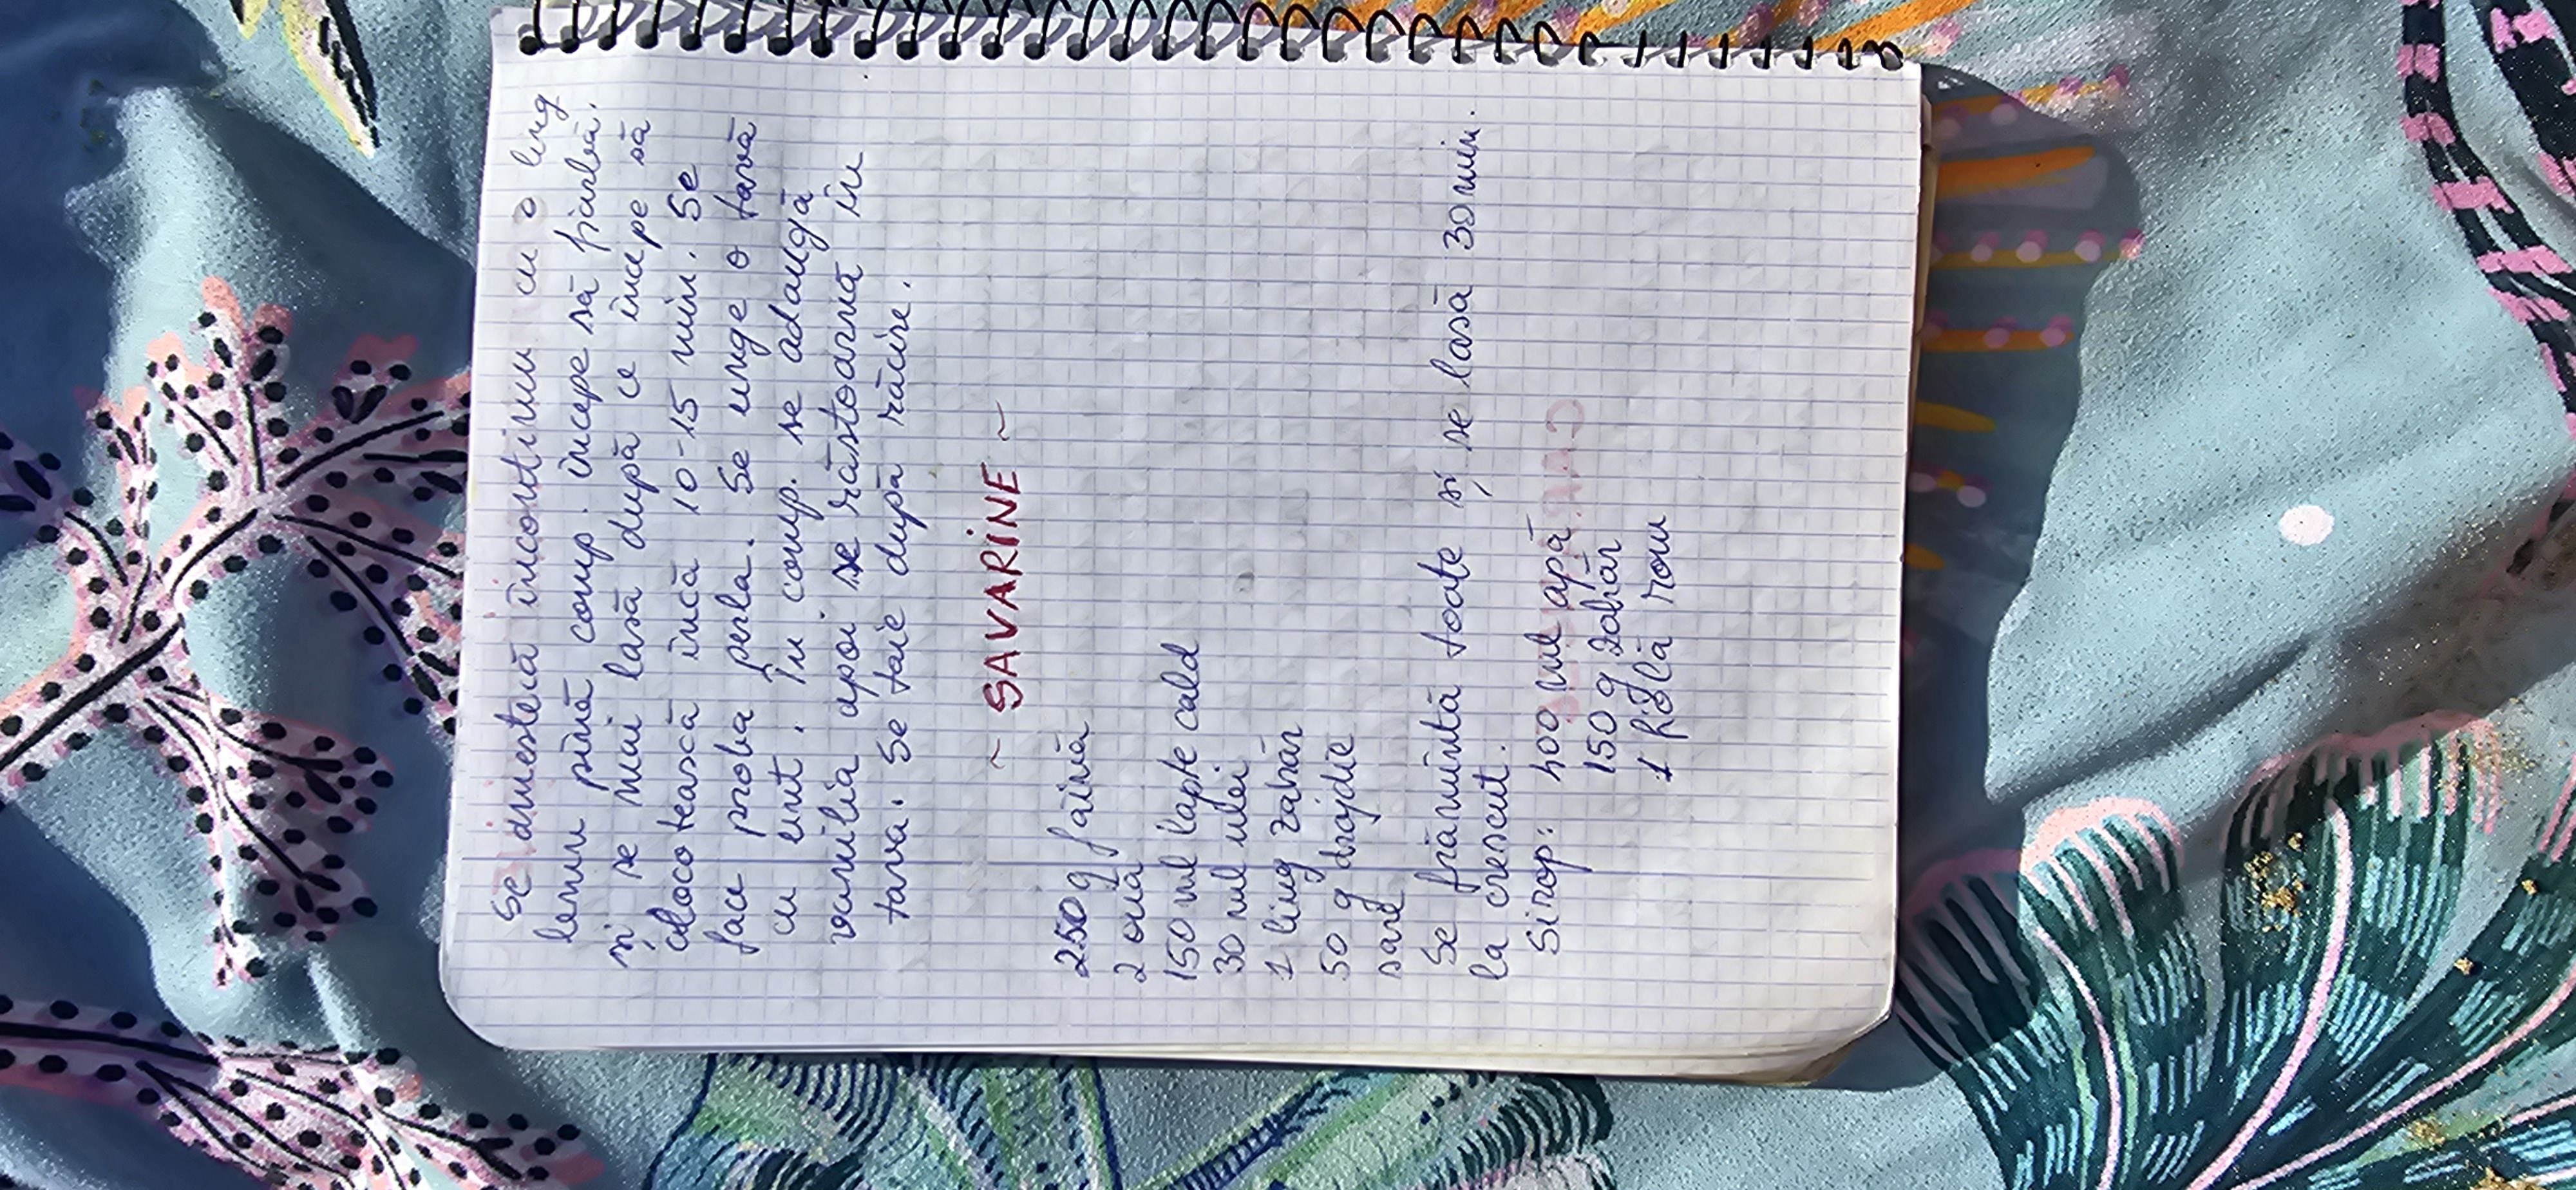 Se amestecă încontinuu cu o ling
lemn pînă comp. începe să fiarbă.
și se mai lasă după ce începe să
clocotească încă 10-15 min. Se
face proba perla. Se unge o tavă
cu unt. În comp. se adaugă
vanilia apoi se răstoarnă în
tava. Se taie după răcire.
~ SAVARINE ~
250 g făină
2 ouă
150 ml lapte cald
30 ml ulei
1 ling zahăr
50 g drojdie
sare
Se frămîntă toate și se lasă 30 min.
la crescut.
Sirop: 400 ml apă
150 g zahăr
1 fiolă rom